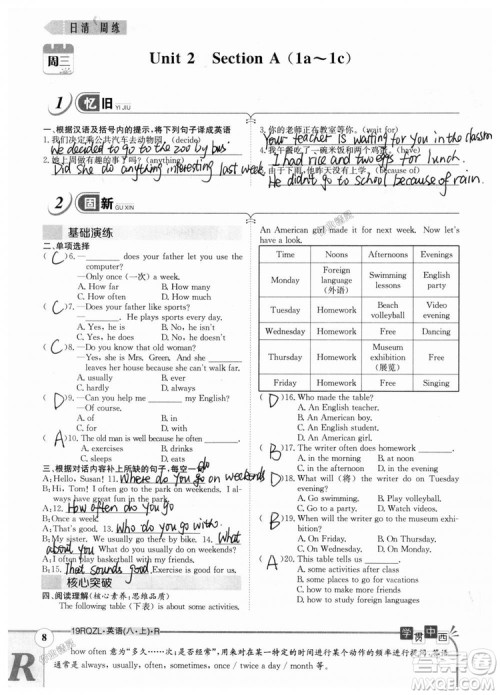 日清 周练
周三
Unit 2 Section A（1a～1c）
1 忆 旧 YI JIU
一、根据汉语及括号内的提示，将下列句子译成英语
1. 我们决定乘公共汽车去动物园。(decide)
We decided to go to the zoo by bus
2. 她上周做有趣的事了吗？(anything)
Did she do anything interesting last week
3. 你的老师正在教室等你。(wait for)
Your teacher is waiting for you in the classroom
4. 我午餐吃了一碗米饭和两个鸡蛋。(have)
I had rice and two eggs for lunch.
由于下雨，他没去上学。(because of)
He didn't go to school because of rain.
2 固 新 GU XIN
基础演练
二、单项选择
( C )6. —______ does your father let you use the
computer?
—Only once (一次) a week.
A. How far B. How many
C. How often D. How much
( C )7. —Does your father like sports?
—______. He plays sports every day.
A. Yes, he is B. No, he isn't
C. Yes, he does D. No, he doesn't
( C )8. —Do you know that old woman?
—Yes, she is Mrs. Green. And she has
______ milk for breakfast.
A. either B. ever
C. hardly D. always
( D )9. —Can you help me ______ my English?
—Of course.
A. of B. at
C. after D. with
( A )10. The old man is well because he often ______.
A. exercises B. drinks
C. sleeps D. eats
三、根据对话内容补上所缺的句子，每空一词
A: Hello, Susan! 11. Where do you go on weekends
B: Hi, Tom! I often go to the park on weekends. I
always have great fun in the park.
A: 12. How often do you go
B: Once a week.
A: That's good. 13. Who do you go with?
B: My sister. We usually go there by bike. 14. What
about you What do you usually do on weekends?
A: I often play basketball with my friends.
B: 15. That sounds good. Exercise is good for us.
核心突破
四、阅读理解(核心素养：思维品质)
The following table (下表) is about some
An American girl made it for next week. Now let's
have a look.
Time Noons Afternoons Evenings
Monday Foreign language (外语) Swimming lessons English party
Tuesday Homework Beach volleyball Video evening
Wednesday Homework Free Dancing
Thursday Homework Museum exhibition (展览) Free
Friday Homework Free Singing
( D )16. Who made the table?
A. An English teacher.
B. An English student.
C. An American teacher.
D. An American girl.
( B )17. The writer often does homework ______.
A. in the morning B. at noon
C. in the afternoon D. in the evening
( D )18. What will (将) the writer do on Tuesday
evening?
A. Go swimming. B. Play volleyball.
C. Go to a party. D. Watch a video.
( C )19. When will the writer go to the museum exhi-
bition?
A. On Friday. B. On Tuesday.
C. On Wednesday. D. On Thursday.
( A )20. This table tells us ______.
A. something about after-school activities
B. how to have foreign language lessons
C. how to study foreign languages
D. something about school lessons
8
19RQZL·英语(八·上)·R
学 贯 中 西
R
how often 意为“多久……(次)；是否经常”，用来对在某一特定的时间进行某个动作的频率进行提问，答语
通常是 always / usually / often / sometimes / once / twice a day / month 等。